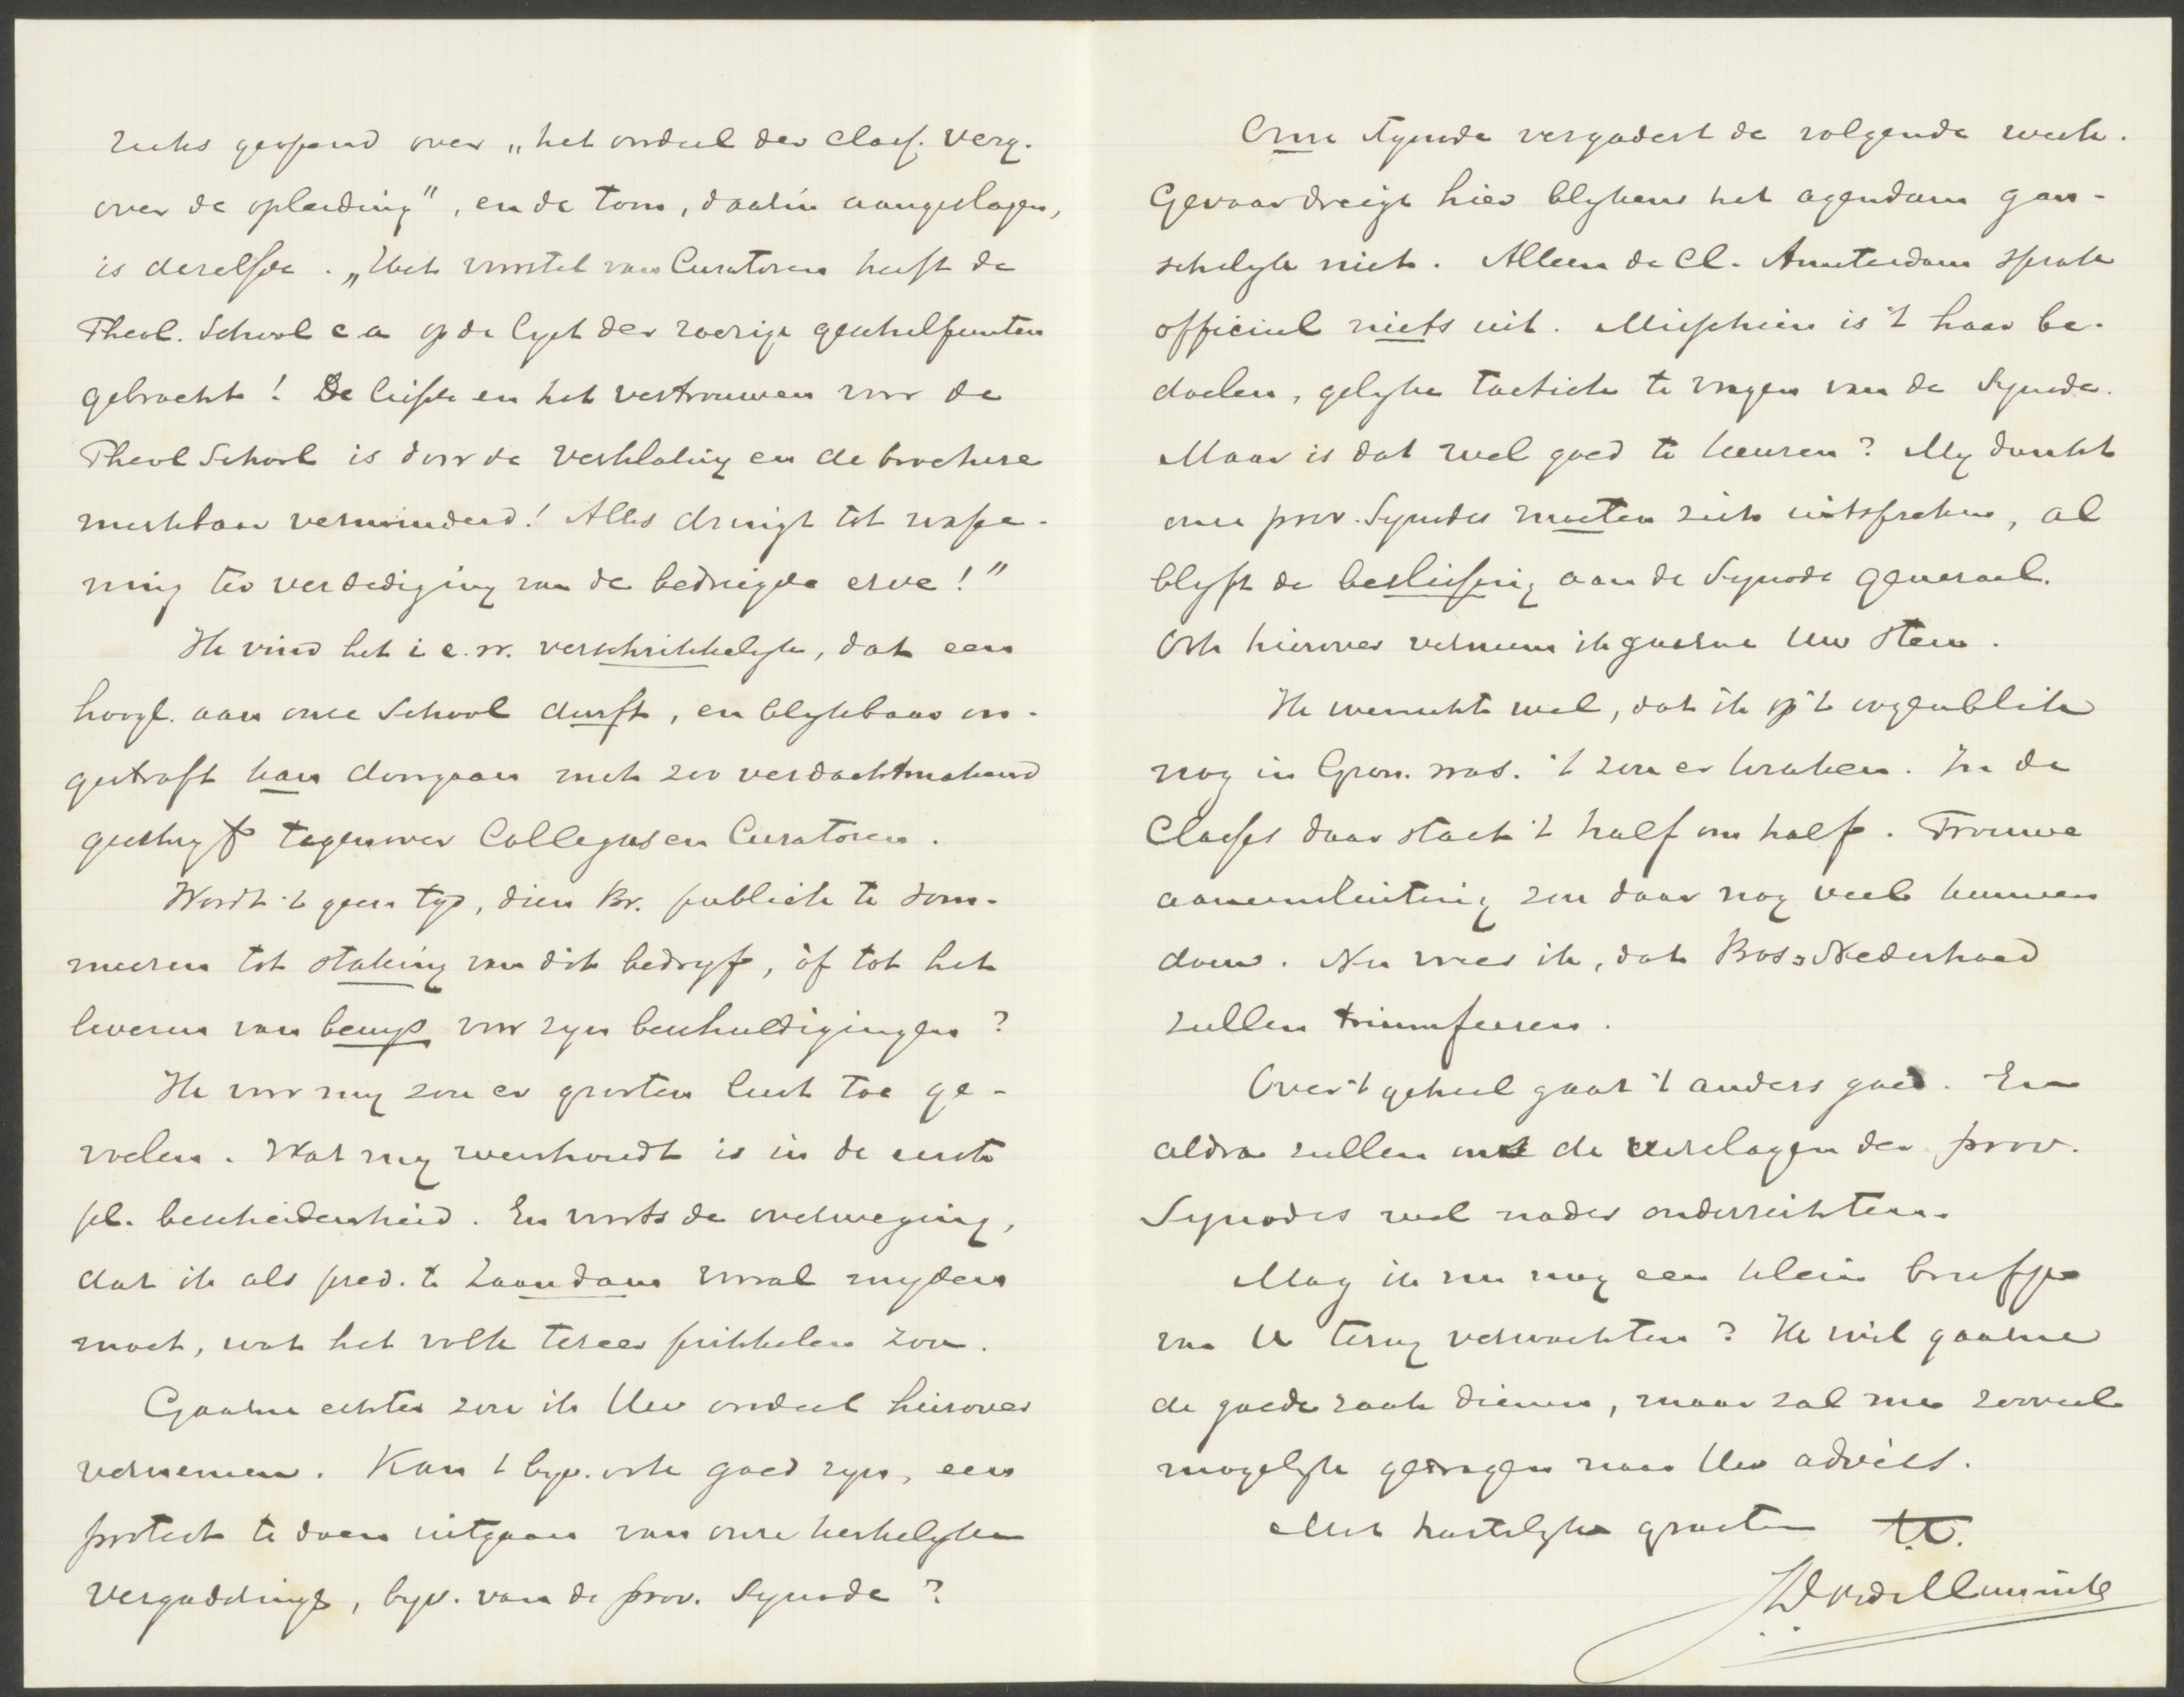 reeks geopend over „het oordeel der class. verg.
over de opleiding", en de toon, daarin aangeslagen,
is dezelfde. „Het voorstel van Curatoren heeft de
Theol. School c a op de lyst der roerige geschilpunten
gebracht! De liefde en het vertrouwen voor de
Theol School is door de verklaring en de brochure
merkbaar verminderd! Alles dringt tot wape-
ning ter verdediging van de bedreigde erve!"
Ik vind het i e. w. verschrikkelyk, dat een
hoogl. aan onze School durft, en blykbaar on-
gestraft kan doorgaan met zoo verdachtmakend
geschryf tegenover Collegas en Curatoren.
Wordt 't geen tyd, dien Br. publiek te som-
meeren tot staking van dit bedryf, òf tot het
leveren van bewys voor zyn beschuldigingen?
Ik voor my zou er grooten lust toe ge-
voelen. Wat my weerhoudt is in de eerste
pl. bescheidenheid. En voorts de overweging,
dat ik als pred. te Zaandam vooral myden
moet, wat het volk terzee prikkelen zou.
Gaarne echter zou ik Uw oordeel hierover
vernemen. Kan 't byv. ook goed zyn, een
protest te doen uitgaan van onze kerkelyke
vergaderings, byv. van de prov. Synode?
Onze Synode vergadert de volgende week.
Gevaar dreigt hier blykens het agendum gan-
schelyk niet. Alleen de Cl. Amsterdam sprak
officieel niets uit. Misschien is 't haar be-
doelen, gelyke tactiek te vragen van de Synode.
Maar is dat wel goed te keuren? My dunkt
onze prov. Synodes moeten zich uitspreken, al
blyft de beslissing aan de Synode generaal.
Ook hierover verneem ik gaarne Uw stem.
Ik wenschte wel, dat ik op 't oogenblik
nog in Gron. was. 't zou er kraken. In de
Classes daar staat 't half om half. Trouwe
aaneensluiting zou daar nog veel kunnen
doen. Nu vrees ik, dat Bos & Nederhoed
zullen triumfeeren.
Over 't geheel gaat 't anders goed. En
aldra zullen ons de verslagen der prov.
Synodes wel nader onderrichten.
Mag ik nu nog een klein briefje
van U terug verwachten? Ik wil gaarne
de goede zaak dienen, maar zal me zooveel
mogelyk gedragen naar Uw advies.
Met hartelyke groeten t.t.